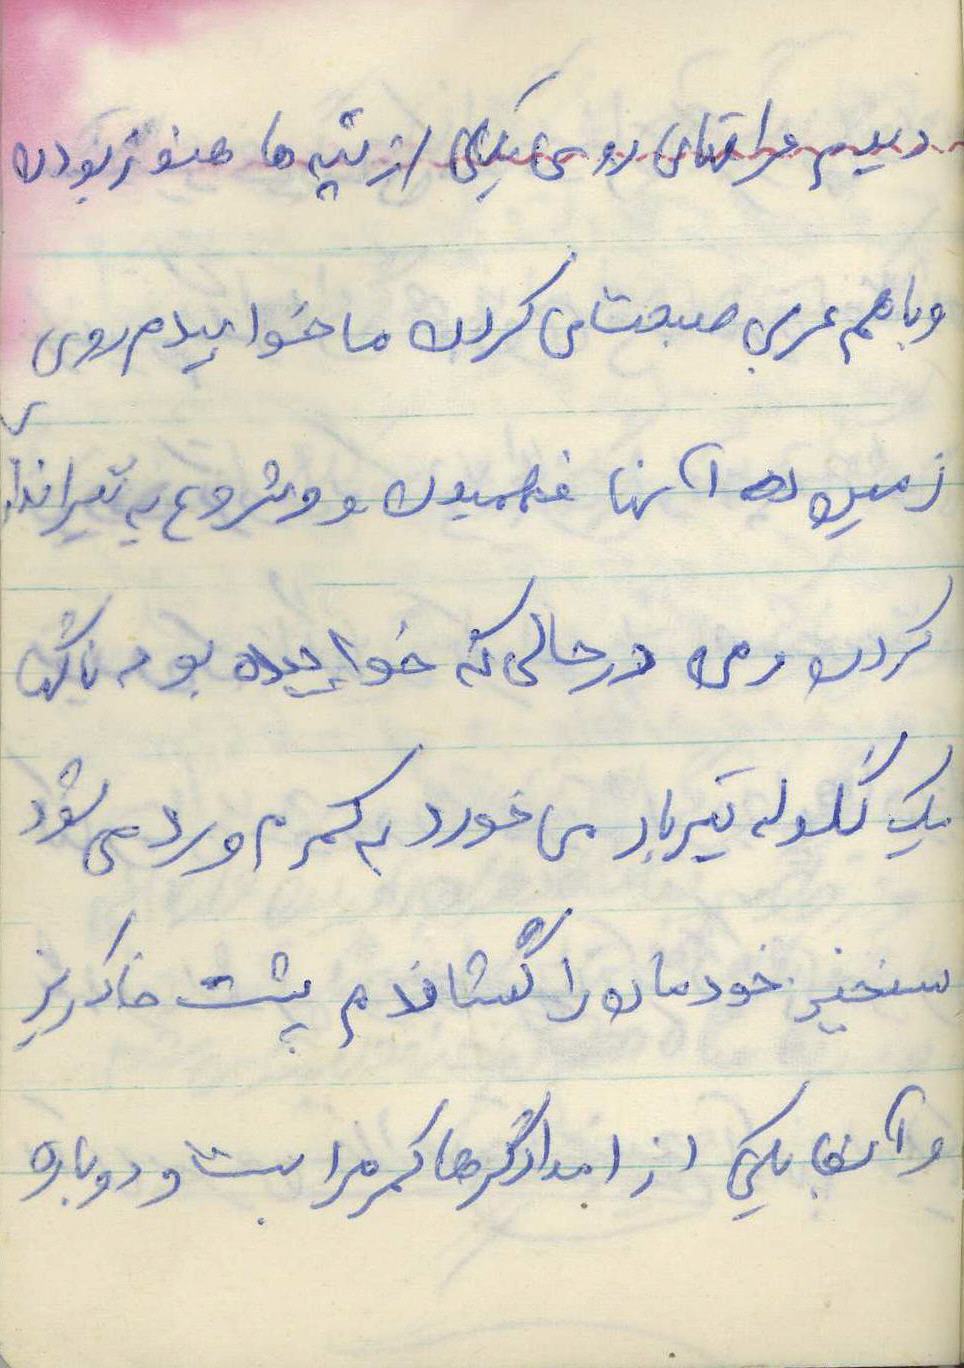 دیدیم عراقهای روسی یکی از تپه ها هنوز بودن
و با هم عربی صبحت می کردن ما خوابیدم روی
زمین که آنها فهمیدن و وشروع به تیراندا
کردن ومن درحالی که خوابیده بودم ناگها
یک گلوله تیربار می خورد به کمرم ورد می شود
سنخیز خودمان را کشاندم پشت خاکریز
و آنجا یکی از امدادگرها کمر مرا بست و دوباره